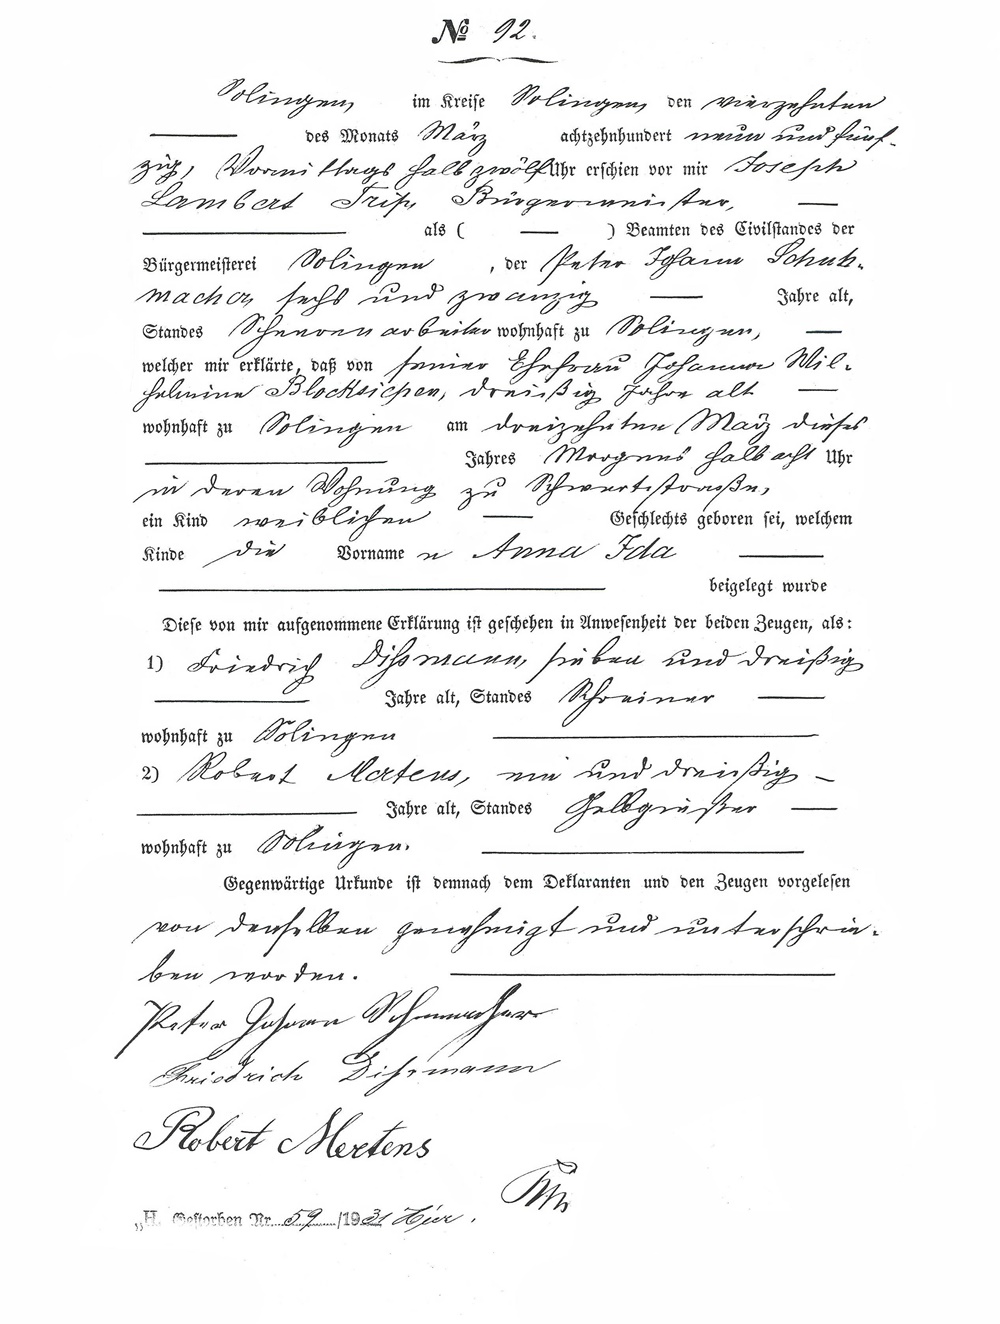 No 92.
Solingen, im Kreise Solingen, den vierzehnten
des Monats März achtzehnhundert neun und fünf-
zig, Vormittags halb zwölf Uhr erschien vor mir Joseph
Lambert Trip, Bürgermeister,
als ( ) Beamten des Civilstandes der
Bürgermeisterei Solingen, der Peter Johann Schuh-
macher, sechs und zwanzig Jahre alt,
Standes Scheerenarbeiter wohnhaft zu Solingen,
welcher mir erklärte, daß von seiner Ehefrau Johanna Wil-
helmine Blocksiepen, dreißig Jahre alt
wohnhaft zu Solingen am dreizehnten März dieses
Jahres Morgens halb acht Uhr
in deren Wohnung zu Schwertstraße,
ein Kind weiblichen Geschlechts geboren sei, welchem
Kinde die Vorname n Anna Ida
beigelegt wurde
Diese von mir aufgenommene Erklärung ist geschehen in Anwesenheit der beiden Zeugen, als:
1) Friedrich Dihsmann, sieben und dreißig
Jahre alt, Standes Schreiner
wohnhaft zu Solingen
2) Robert Mertens, ein und dreißig
Jahre alt, Standes Gelbgießer
wohnhaft zu Solingen.
Gegenwärtige Urkunde ist demnach dem Deklaranten und den Zeugen vorgelesen
von denselben genehmigt und unterschrie-
ben worden.
Peter Johann Schumacher
Friedrich Dihsmann
Robert Mertens
„H. Gestorben Nr. 59/1931 Hier.